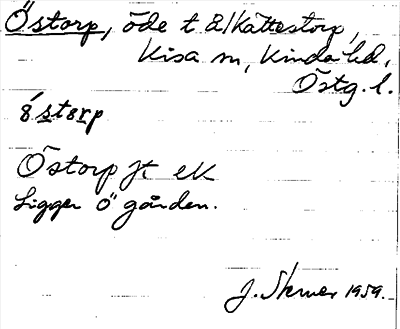 Östorp, öde t 2/Kättestorp,
Kisa sn, Kinda hd,
Östg. l.
östorp
Östorp jt ek
Ligger ö gården.
J. Skruer 1959.